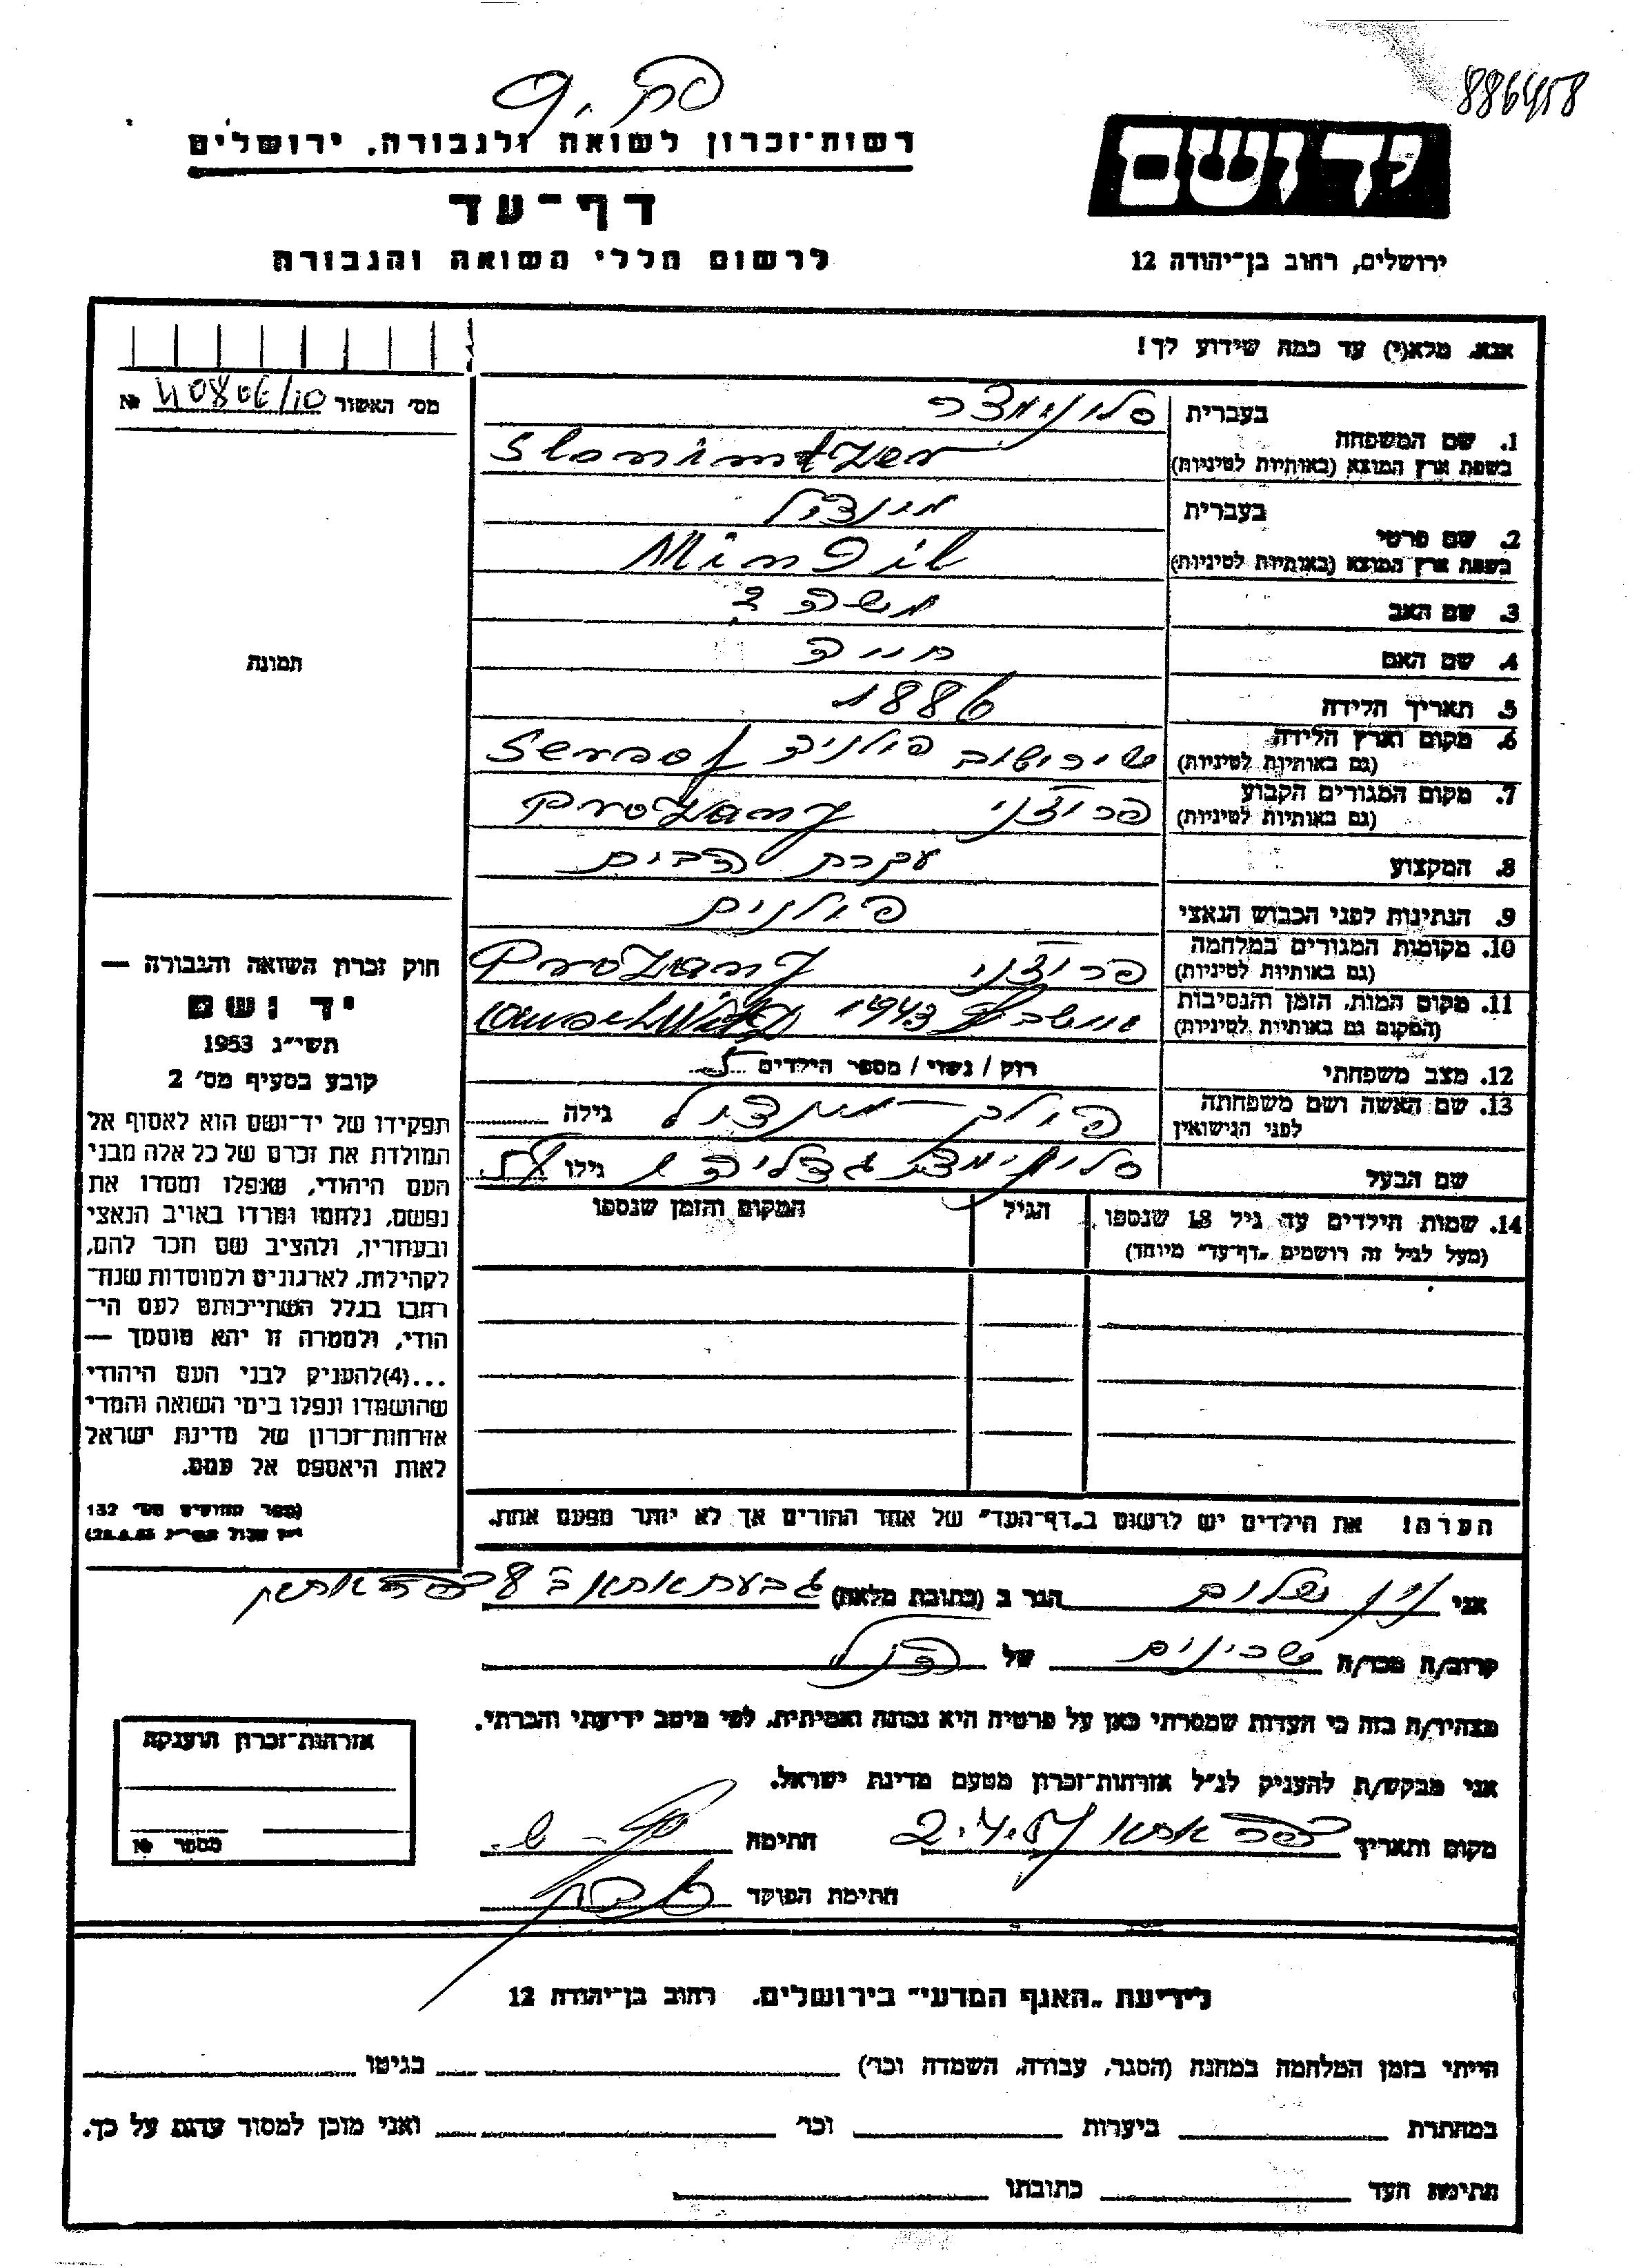 886458
רשות־זכרון לשואה ולגבורה, ירושלים
דף־עד
לרשום חללי השואה והגבורה
יד ושם
ירושלים, רחוב בן־יהודה 12
אנא, מלא(י) עד כמה שידוע לך!
מס׳ האשור 40806/10 №
1. שם המשפחה בעברית סלונימצר
בשפת ארץ המוצא (באותיות לטיניות) Slonimtzer
2. שם פרטי בעברית מינדיל
בשפת ארץ המוצא (באותיות לטיניות) Mindil
3. שם האב משה
4. שם האם חייה
5. תאריך הלידה 1886
6. מקום וארץ הלידה (גם באותיות לטיניות) שירשוב פולניה
7. מקום המגורים הקבוע (גם באותיות לטיניות) פרוצני Prozany
8. המקצוע עקרת הבית
9. הנתינות לפני הכבוש הנאצי פולנית
10. מקומות המגורים במלחמה (גם באותיות לטיניות) פרוצני Prozany
11. מקום המות, הזמן והנסיבות (המקום גם באותיות לטיניות) 1943
12. מצב משפחתי רווק / נשוי / מספר הילדים 5
13. שם האשה ושם משפחתה לפני הנישואין מינדיל גילה
שם הבעל סלונימצר גדליה גילו
14. שמות הילדים עד גיל 18 שנספו (מעל לגיל זה רושמים „דף־עד” מיוחד)
הגיל
המקום והזמן שנספו
תמונה
חוק זכרון השואה והגבורה —
יד ושם
תשי״ג 1953
קובע בסעיף מס׳ 2
תפקידו של יד־ושם הוא לאסוף אל
המולדת את זכרם של כל אלה מבני
העם היהודי, שנפלו ומסרו את
נפשם, נלחמו ומרדו באויב הנאצי
ובעוזריו, ולהציב שם וזכר להם,
לקהילות, לארגונים ולמוסדות שנח־
רחבו בגלל השתייכותם לעם הי־
הודי, ולמטרה זו יהא מוסמך —
...(4)להעניק לבני העם היהודי
שהושמדו ונפלו בימי השואה והמרי
אזרחות־זכרון של מדינת ישראל
לאות היאספם אל עמם.
(ספר החוקים מס׳ 132
הערה! את הילדים יש לרשום ב„דף־העד” של אחד ההורים אך לא יותר מפעם אחת.
אני שלום הגר ב (כתובת מלאה) גבעת אתא
קרוב/ה מכר/ה שכינים של הנ״ל
מצהיר/ה בזה כי העדות שמסרתי כאן על פרטיה היא נכונה ואמיתית, לפי מיטב ידיעתי והכרתי.
אני מבקש/ת להעניק לנ״ל אזרחות־זכרון מטעם מדינת ישראל.
מקום ותאריך כפר אתא 2.4.57 חתימה
חתימת הפוקד
אזרחות־זכרון הוענקה
מספר №
לידיעת „האגף המדעי” בירושלים, רחוב בן־יהודה 12
הייתי בזמן המלחמה במחנה (הסגר, עבודה, השמדה וכו׳) בגיטו
במחתרת ביערות וכו׳ ואני מוכן למסור עדות על כך.
חתימת העד כתובתו